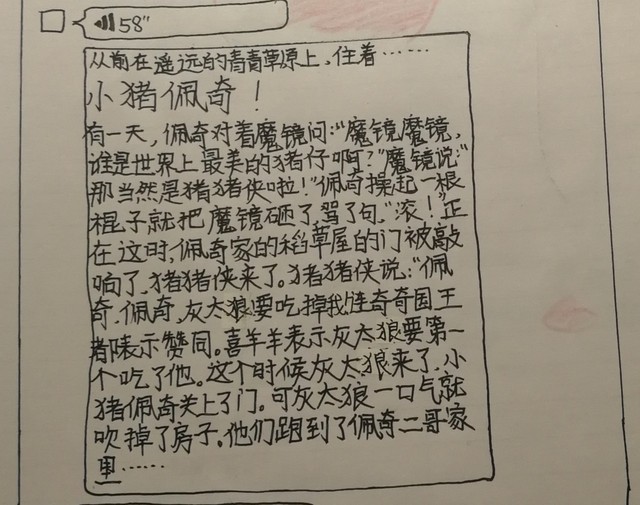 58"
从前在遥远的青青草原上，住着……
小猪佩奇！
有一天，佩奇对着魔镜问："魔镜魔镜，
谁是世界上最美的猪仔啊？"魔镜说："
那当然是猪猪侠啦！"佩奇操起一根
棍子就把魔镜砸了，骂了句，"滚！"正
在这时，佩奇家的稻草屋的门被敲
响了，猪猪侠来了。猪猪侠说："佩
奇，佩奇，灰太狼要吃掉我！连奇奇国王
都表示赞同。喜羊羊表示灰太狼要第一
个吃了他。这个时候灰太狼来了，小
猪佩奇关上了门。可灰太狼一口气就
吹掉了房子。他们跑到了佩奇二哥家
里……